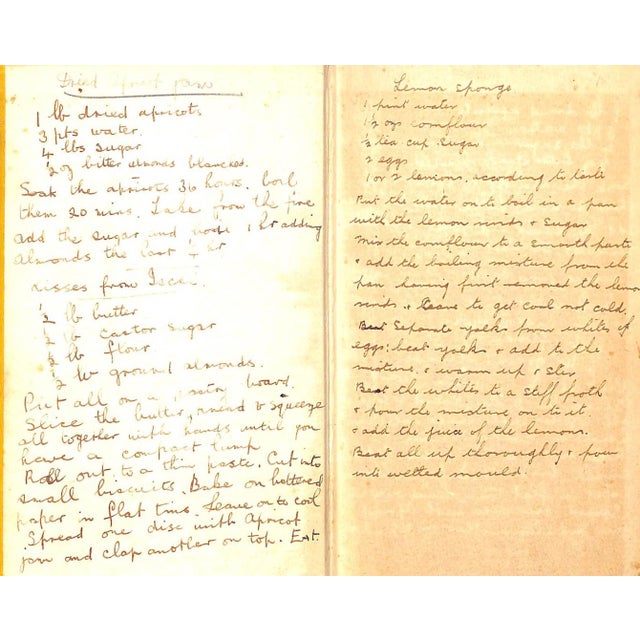 Dried Apricot Jam
1 lb dried apricots
3 pts water.
4 lbs sugar
½ oz bitter almonds blanched.
Soak the apricots 36 hours. boil
them 20 mins. Take from the fire
add the sugar and 1 hr adding
almonds the last ¼ hr
Kisses from
½ lb butter
½ lb castor sugar
½ lb flour
½ lb ground almonds.
Put all on a board.
Seize the butter, knead & squeeze
all together with hands until you
have a compact lump
Roll out to a thin paste. Cut into
small biscuits. Bake on buttered
paper in flat tins. Leave on to cool
Spread one disc with Apricot
jam and clap another on top. Eat.
Lemon Sponge
1 pint water
1½ ozs cornflour
½ tea cup sugar
2 eggs
1 or 2 lemons, according to taste
Put the water on to boil in a pan
with the lemon rinds & sugar
Mix the cornflour to a smooth paste
& add the boiling mixture from the
pan having first removed the lemon
rinds. & leave to get cool not cold.
Separate yolks from whites of
eggs; beat yolks & add to the
mixture. & warm up & stir
Beat the whites to a stiff froth
& pour the mixture on to it.
& add the juice of the lemons.
Beat all up thoroughly & pour
into wetted mould.